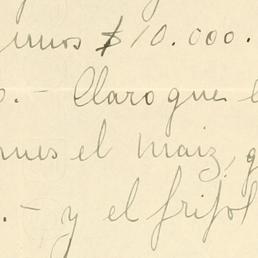 unos $10.000.
.- Claro que
el maiz,
.- y el frijol